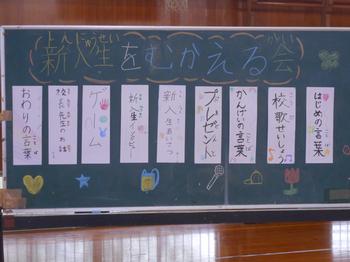 新入生をむかえる会
しんにゅうせい
かい
はじめの言葉
ことば
校歌せいしょう
かんげいの言葉
ことば
プレゼント
新入生あいさつ
新入生インタビュー
ゲーム
校長先生のお話
おわりの言葉
ことば